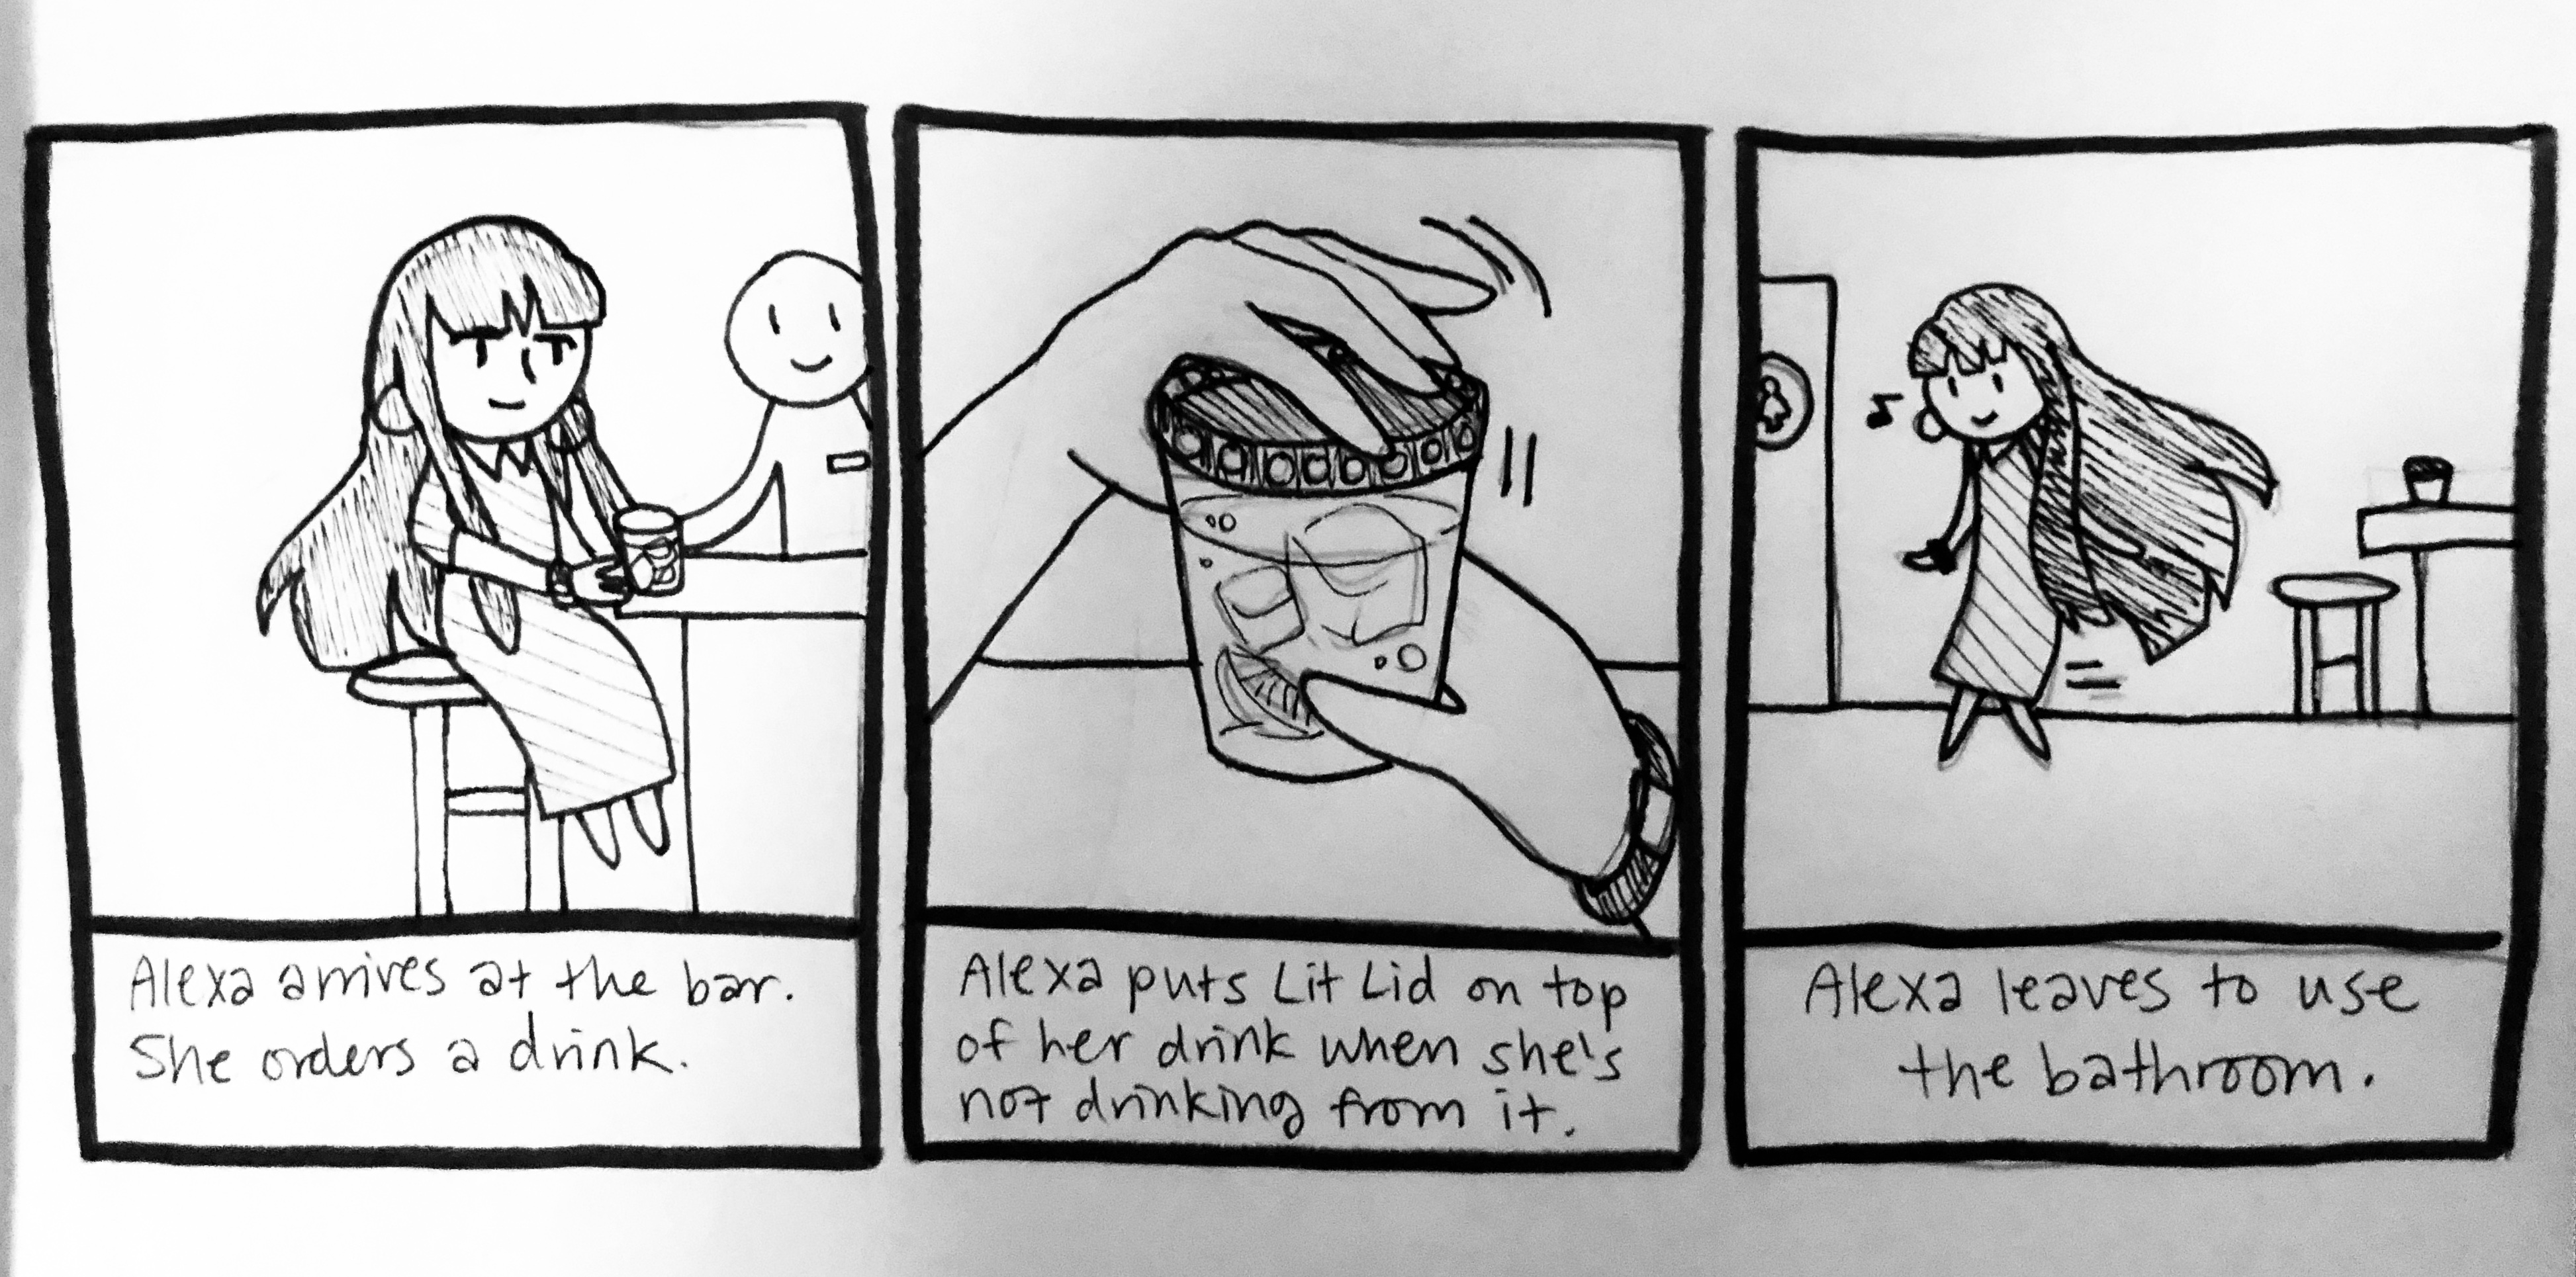 Alexa arrives at the bar.
She orders a drink.
Alexa puts Lit Lid on top
of her drink when she's
not drinking from it.
Alexa leaves to use
the bathroom.